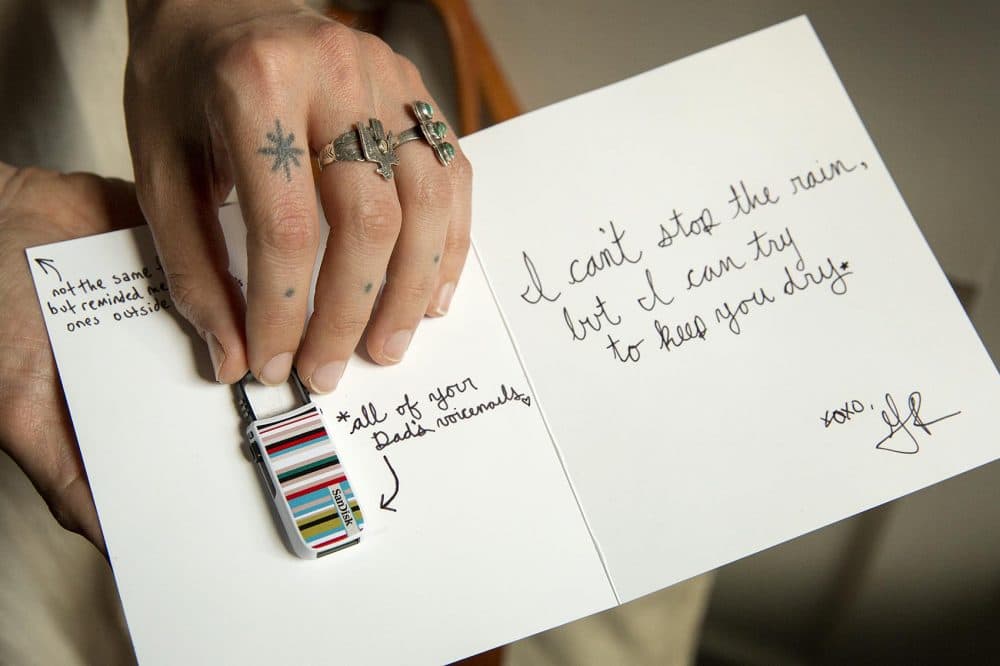 not the same
but reminded me
ones outside
*all of your
Dad's voicemails
SanDisk
I can't stop the rain,
but I can try
to keep you dry*
xoxo,